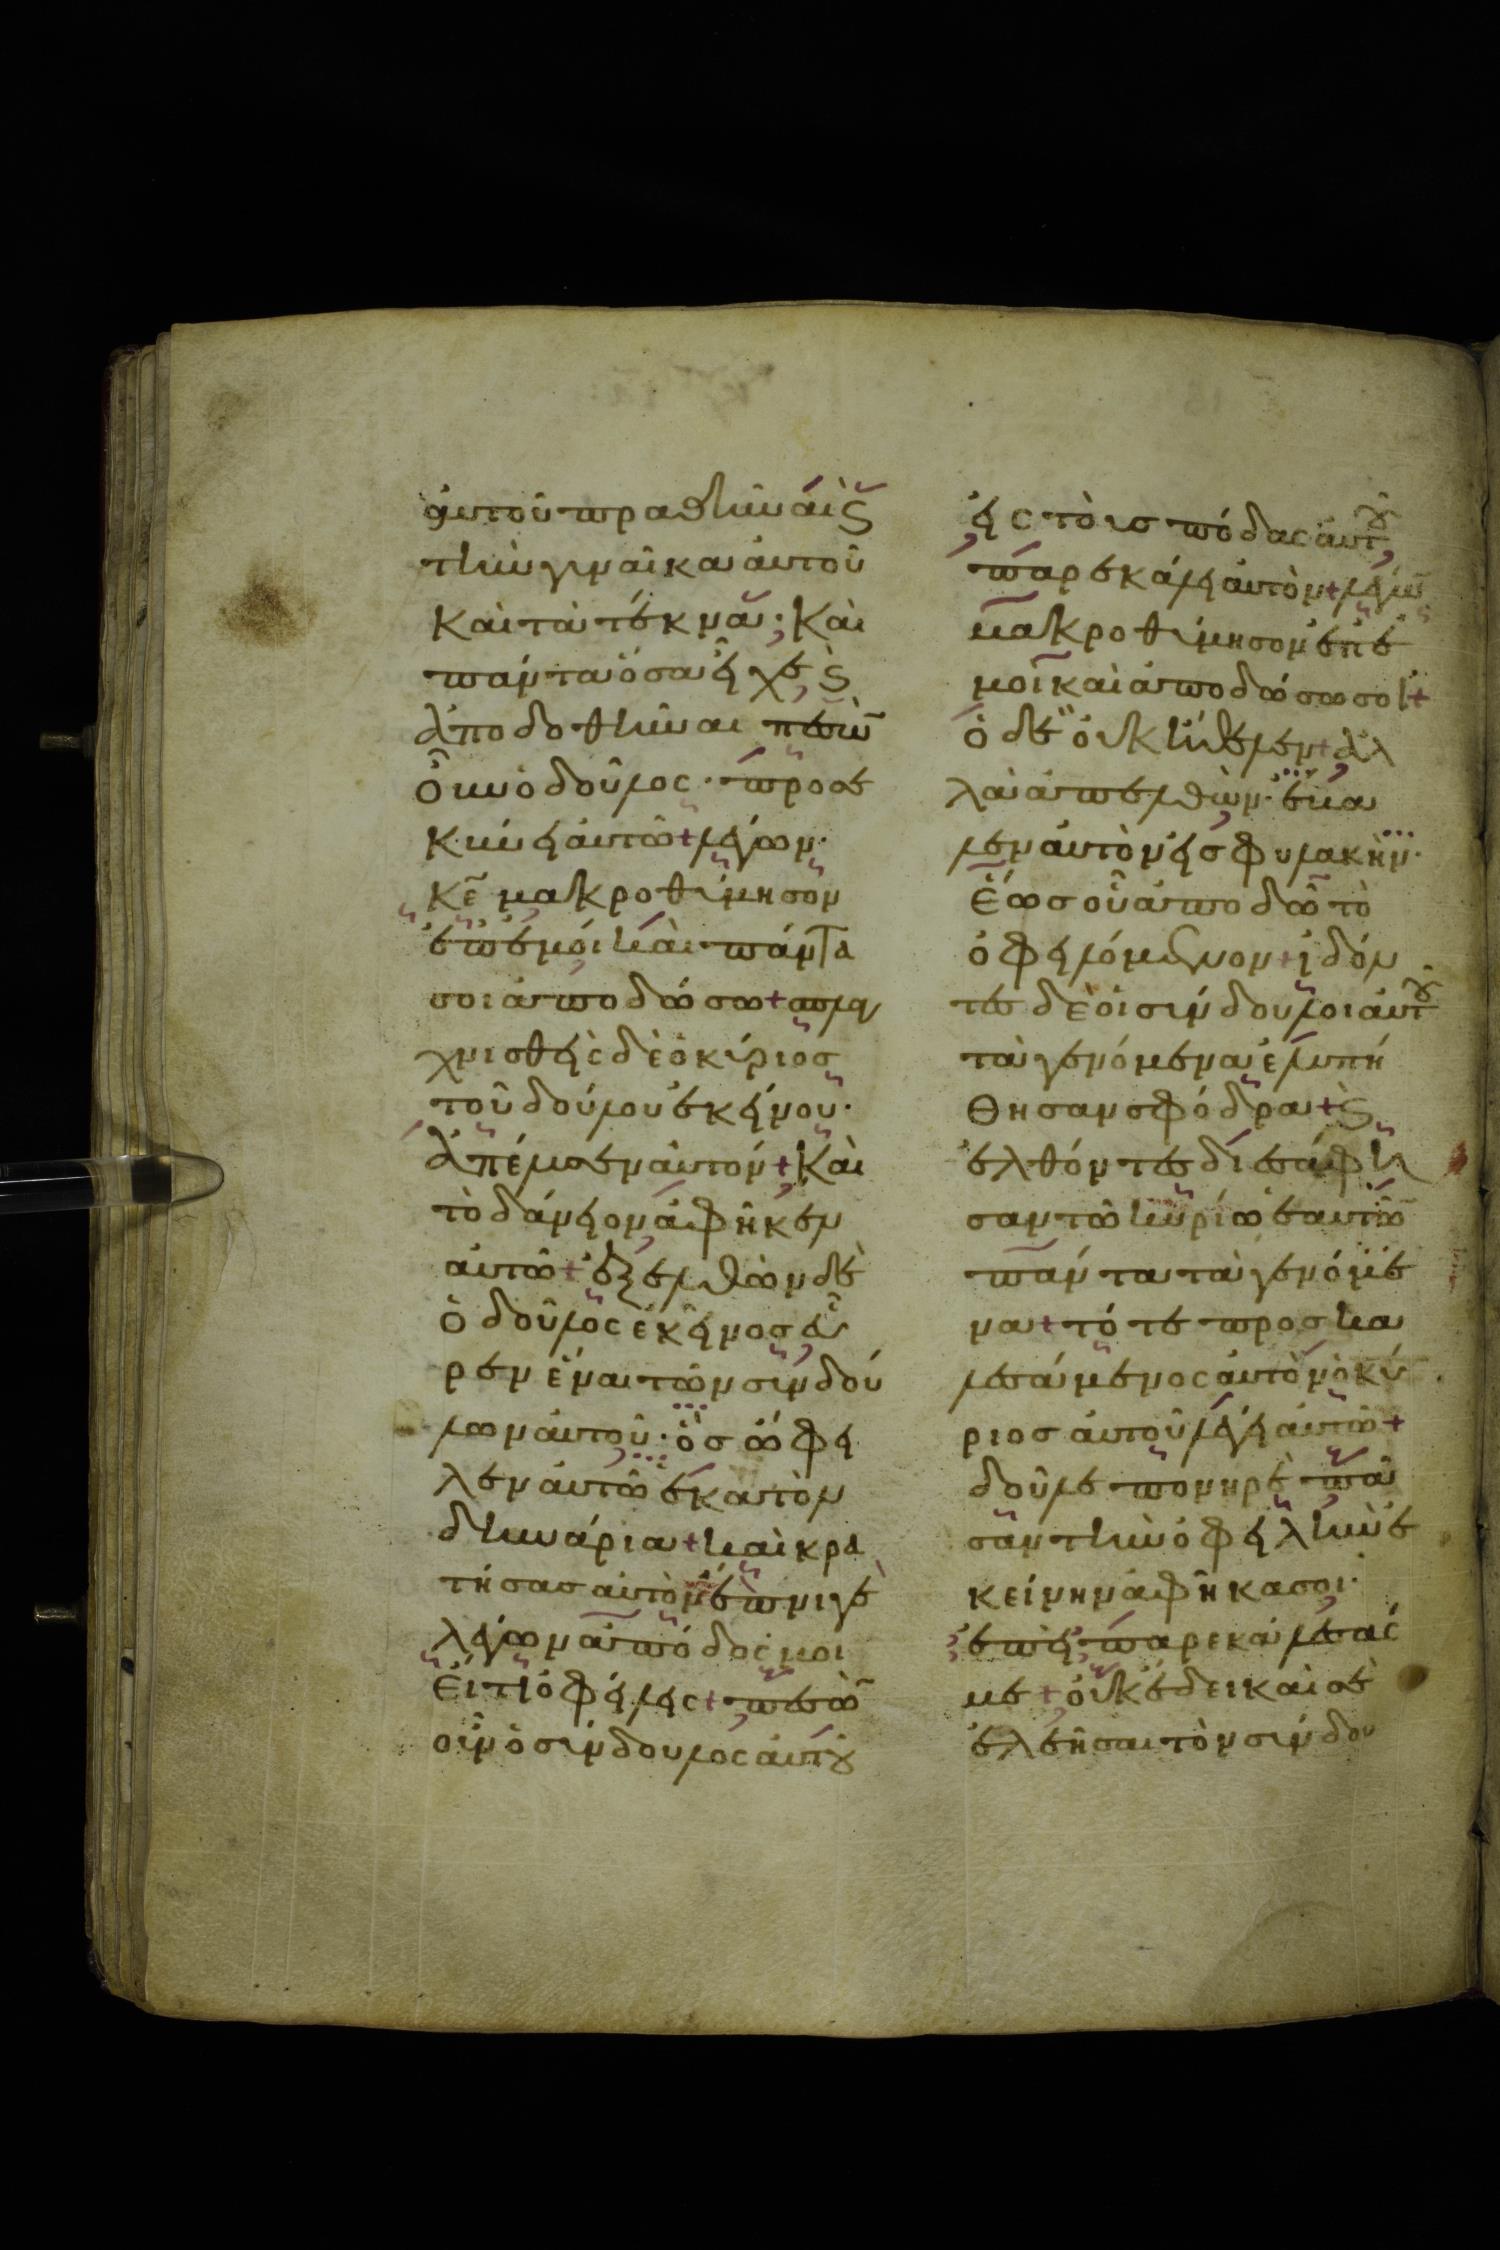 ἀυτοῦ πραθῆναι ϗ
τὴν γυναῖκα ἀυτοῦ
καὶ τὰ τέκνα· καὶ
πάντα ὅσα εἶχε ϗ
ἀποδοθῆναι πεσὼ̅
ὃυν ὁ δοῦλος· προσε
κύνει ἀυτῶ + λέγων·
κ̅ε̅ μακροθύμησον
ἐπ' ἐμοὶ καὶ πάντα
σοι ἀποδώσω + σπλα
χνισθεὶς δὲ ὁ κύριος
τοῦ δούλου ἐκείνου·
ἀπέλυσεν ἀυτόν + καὶ
τὸ δάνειον ἀφῆκεν
ἀυτῶ + ἐξελθὼν δὲ
ὁ δοῦλος ἐκεῖνος εὗ
ρεν ἕνα τῶν συνδού
λων ἀυτοῦ· ὃς ὤφει
λεν ἀυτῶ ἑκατὸν
δηνάρια + καὶ κρα
τήσας ἀυτὸν ἔπνιγε
λέγων ἀπόδος μοι
εἴ τι ὀφείλεις + πεσὼ̅
οὖν ὁ σύνδουλος ἀυτοῦ
εἰς τοὺς πόδας ἀυτοῦ
παρεκάλει ἀυτὸν + λέγω̅
μακροθύμησον ἐπ' ἐ
μοὶ καὶ ἀποδώσω σοι +
ὁ δὲ οὐκ ἤθελεν + ἀλ
λὰ ἀπελθὼν· ἔβα
λεν ἀυτὸν εἰς φυλακὴν·
ἕως οὗ ἀποδῶ τὸ
ὀφειλόμενον + ἰδόν
τες δὲ οἱ σύνδουλοι ἀυτοῦ
τὰ γενόμενα ἐλυπή
θησαν σφόδρα + ϗ
ἐλθόντες διεσάφη
σαν τῶ κυρίω ἑαυτῶ̅
πάντα τὰ γενόμε
να + τότε προσκα
λεσάμενος ἀυτὸν ὁ κύ
ριος ἀυτοῦ λέγει ἀυτῶ +
δοῦλε πονηρὲ πᾶ
σαν τὴν ὀφειλὴν ἐ
κείνην ἀφῆκα σοι·
ἐπεὶ παρεκάλεσάς
με + οὐκ ἔδει καὶ σὲ
ἐλεῆσαι τὸν σύνδου